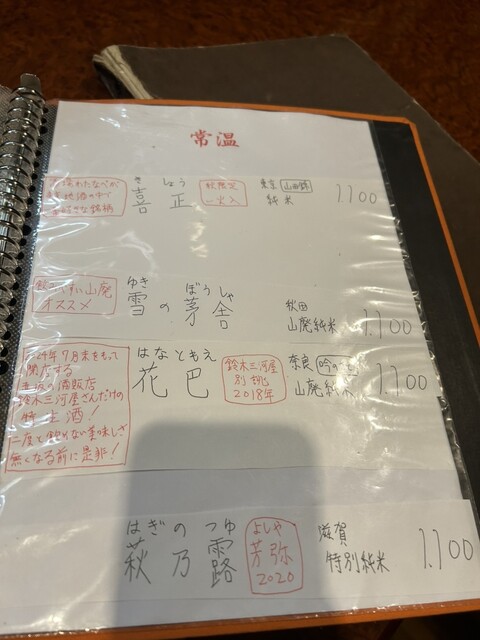 常温
わたなべが
地酒の中で
好きな銘柄
き しょう
喜 正
秋限定
一火入
東京 山田錦
純米
1.100
山廃
オススメ
ゆき ぼうしゃ
雪の茅舎
秋田
山廃純米
1.100
年7月末をもって
閉店する
酒販店
鈴木三河屋さんだけの
生酒!
二度と飲めない美味しさ
無くなる前に是非!
はなともえ
花巴
鈴木三河屋
別誂
2018年
奈良 吟の
山廃純米
1.100
はぎ の つゆ
萩乃露
よしや
芳弥
2020
滋賀
特別純米
1.100